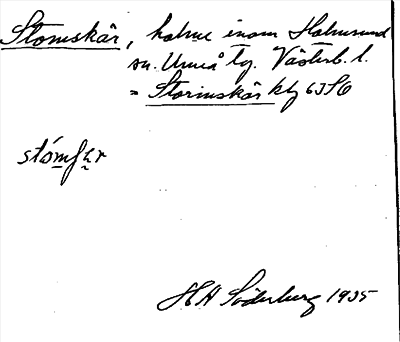 Stomskär, holme inom Holmsund
sn. Umeå tg. Västerb. l.
= Stormskär kbl 63 SO
stómʃær
HA Söderberg 1935